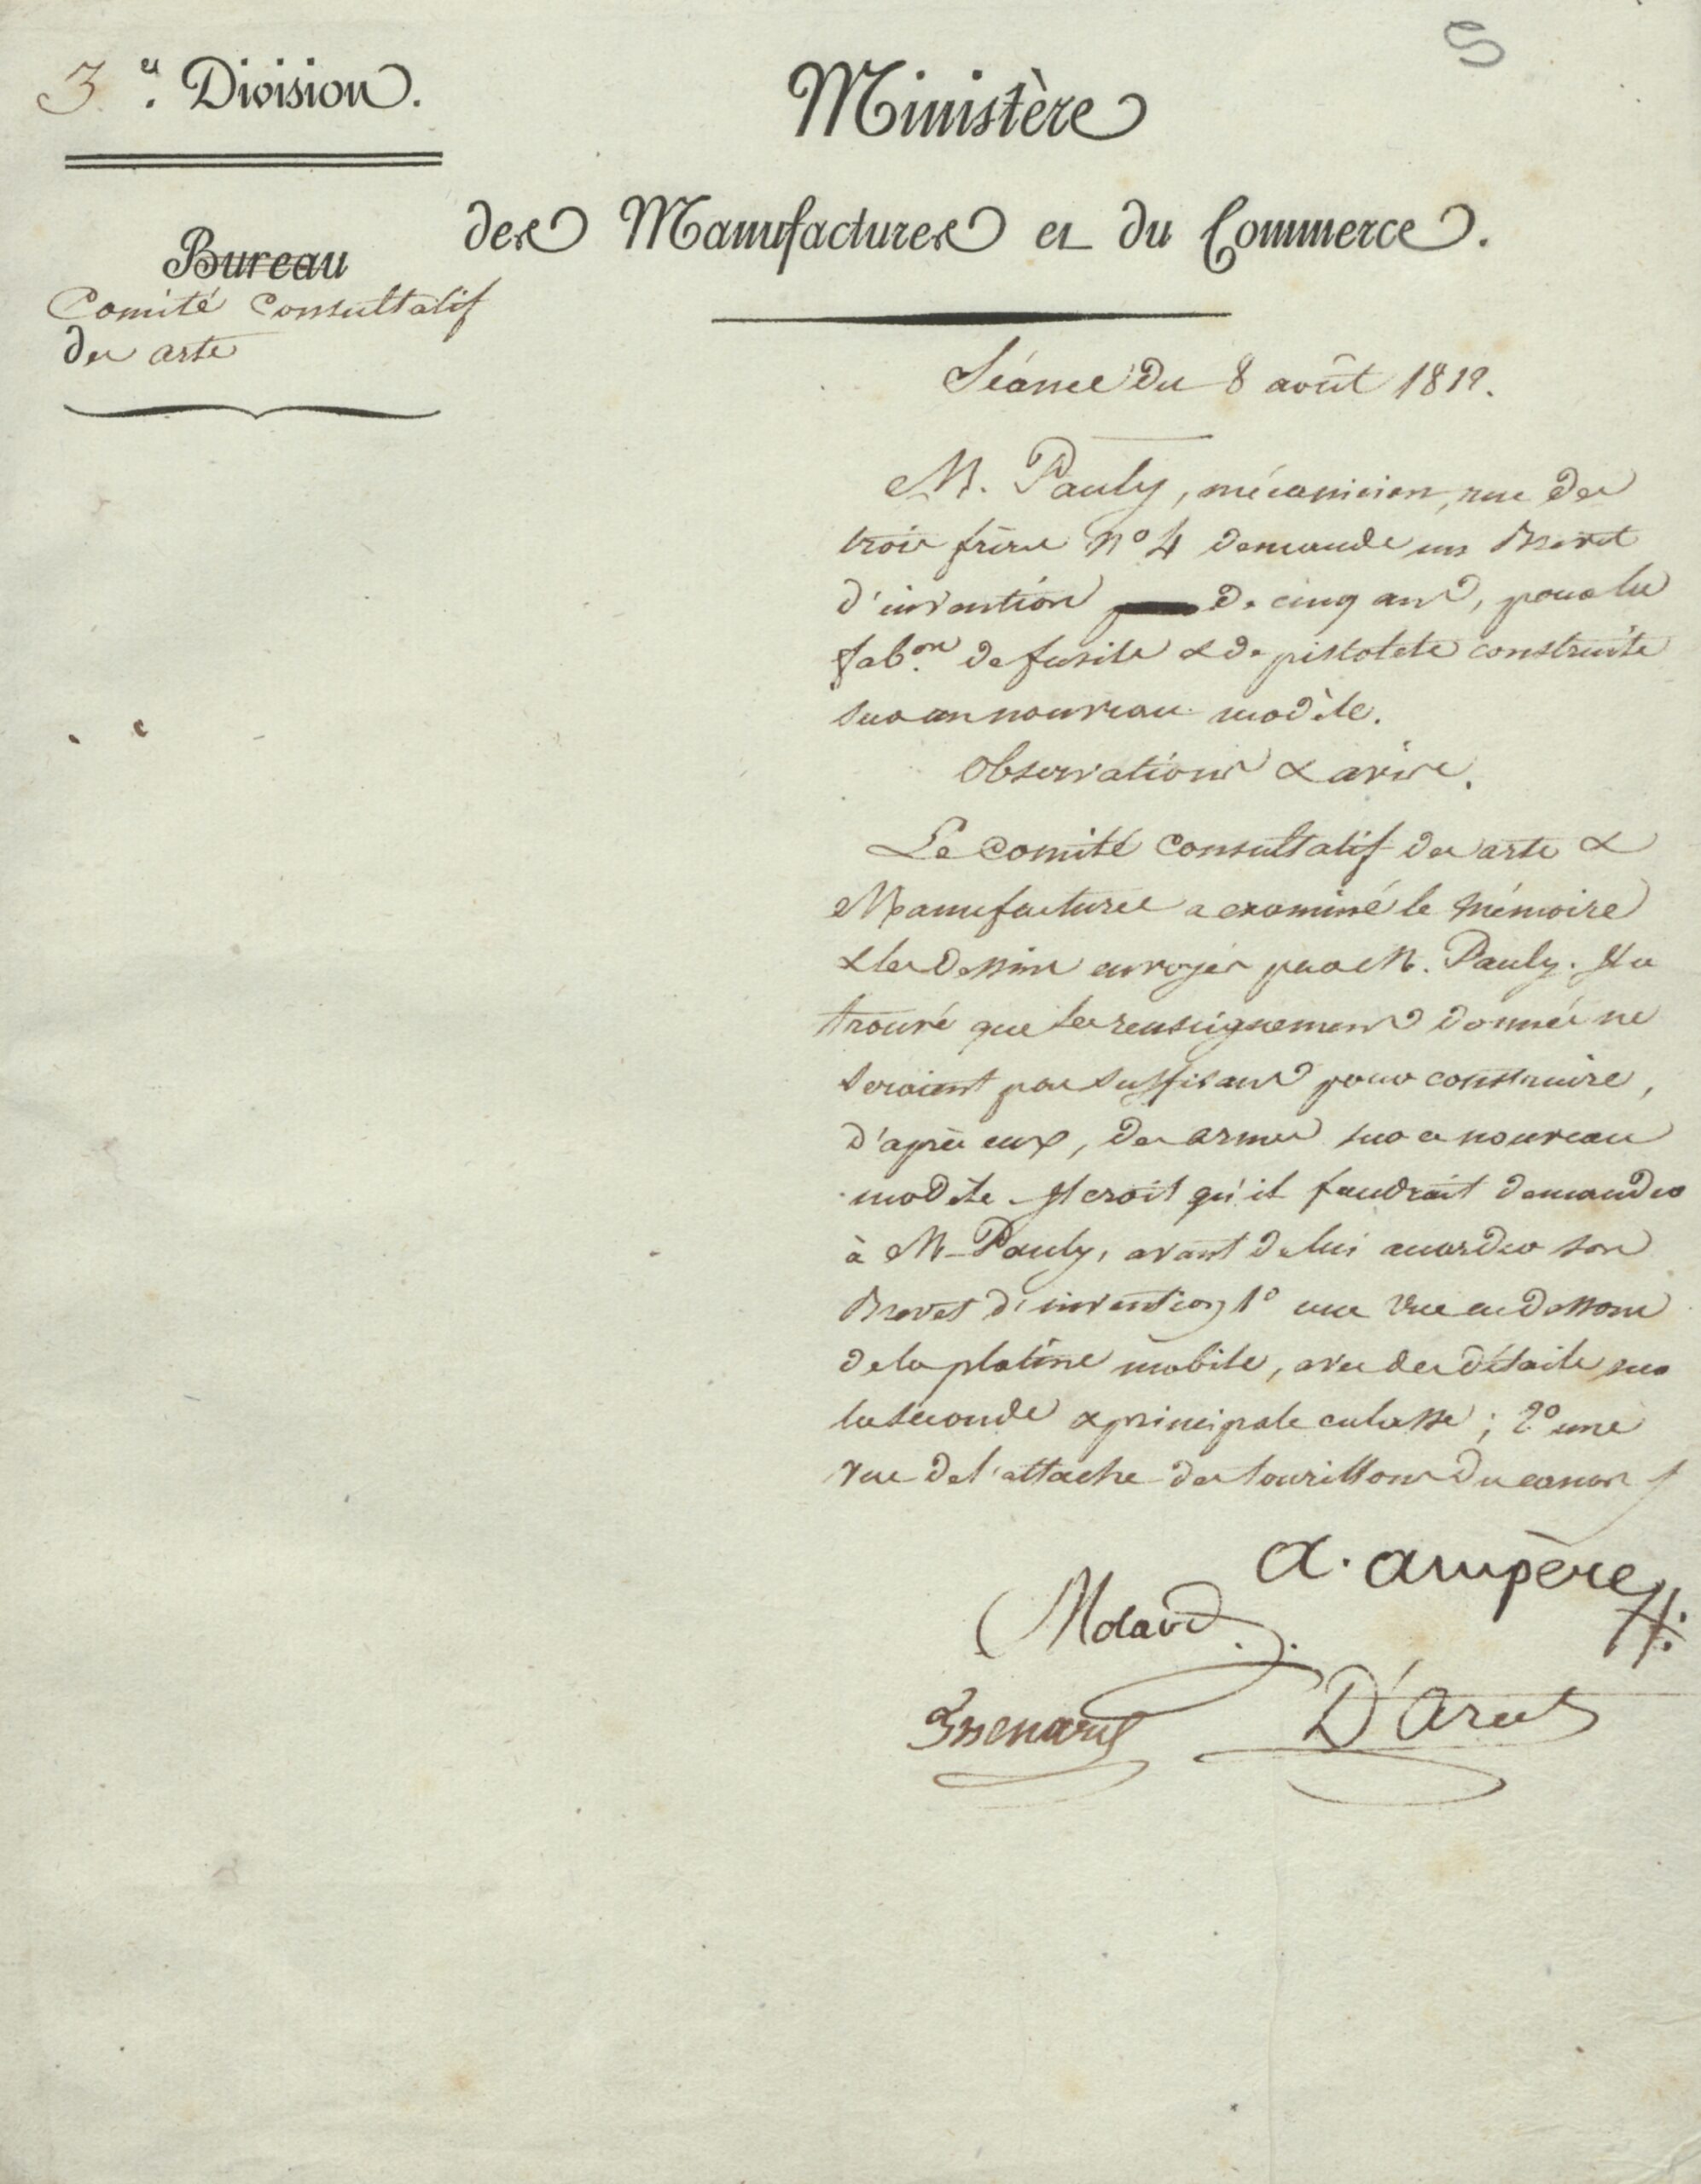 3.e Division.
Ministère
des Manufactures et du Commerce.
Bureau
Comité Consultatif
des arts
Séance du 8 août 1812.
M. Pauly, mécanicien, rue des
trois frères No 4 demande un Brevet
d'invention de cinq ans, pour la
fab.on de fusils & de pistolets construits
sur un nouveau modèle.
Observations & avis.
Le Comité Consultatif des arts &
Manufactures a examiné le Mémoire
& les dessins envoyés par M. Pauly. Il a
trouvé que les renseignemens donnés ne
seroient pas suffisans pour construire,
d'après eux, des armes sur ce nouveau
modèle. Il croit qu'il faudrait demander
à M. Pauly, avant de lui accorder son
Brevet d'invention, 1o une vue en dessous
de la platine mobile, avec des détails sur
la seconde & principale culasse; 2o une
vue de l'attache des tourillons du canon
a. ampère
Molard
Thenard
D'Arcet